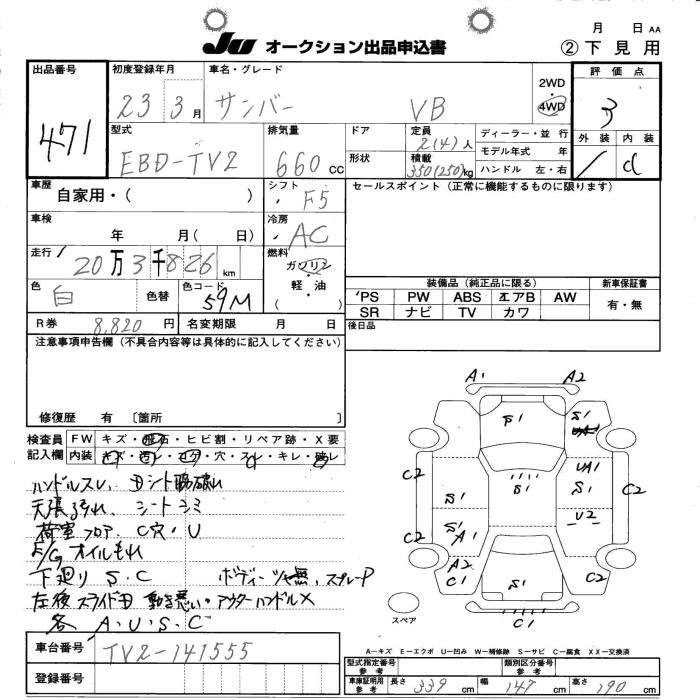 JU オークション出品申込書
月 日 AA
② 下見用
出品番号
471
初度登録年月
23 3月
車名・グレード
サンバー VB
2WD
・
4WD
評価点
3
外装 内装
/ d
型式
EBD-TV2
排気量
660 cc
ドア
形状
定員
2(4)人
積載
350(250)kg
ディーラー・並行
モデル年式 年
ハンドル 左・右
車歴
自家用・( )
シフト
F5
セールスポイント(正常に機能するものに限ります)
車検
年 月( 日)
冷房
AC
走行
20万3千826km
燃料
ガソリン
軽・油
( )
色
白
色替
色コード
59M
装備品(純正品に限る)
新車保証書
PS PW ABS エアB AW
有・無
SR ナビ TV カワ
R券
8,820円
名変期限 月 日
後日品
注意事項申告欄(不具合内容等は具体的に記入してください)
修復歴 有 〔箇所 〕
検査員 FW キズ・飛石・ヒビ割・リペア跡・X要
記入欄 内装 キズ・汚レ・コゲ・穴・スレ・キレ・破レ
ハンドルスレ、Dシート破れ
天張汚れ、シートシミ
荷室フロア、C穴・U
E/G オイルもれ
下廻り S.C ボディーツヤ無、スプレーP
左後スライドD 動き悪い・アウターハンドルX
各 A.U.S.C
A1 A2
S1 S1
UA1
C2 S1 S1 S1 C2
S1 A1 U2
C2 A2 C1 S1 C2
スペア
C1
A―キズ E―エクボ U―凹み W―補修跡 S―サビ C―腐食 XX―交換済
車台番号
TV2-141555
登録番号
型式指定番号
参考
類別区分番号
参考
車庫証明用
参考
長さ 339 cm 幅 147 cm 高さ 190 cm